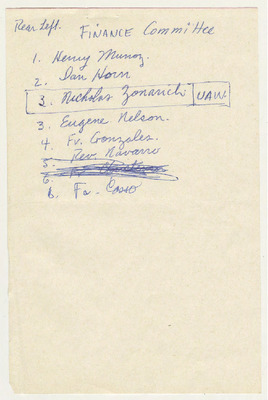 Rear Left. FINANCE Committee
1. Henry Munoz.
2. Dan Horn
3. Nicholas Zonarich UAW.
3. Eugene Nelson.
4. Fr. Gonzales.
5. Rev. Navarro
6.
6. Fa. Casso